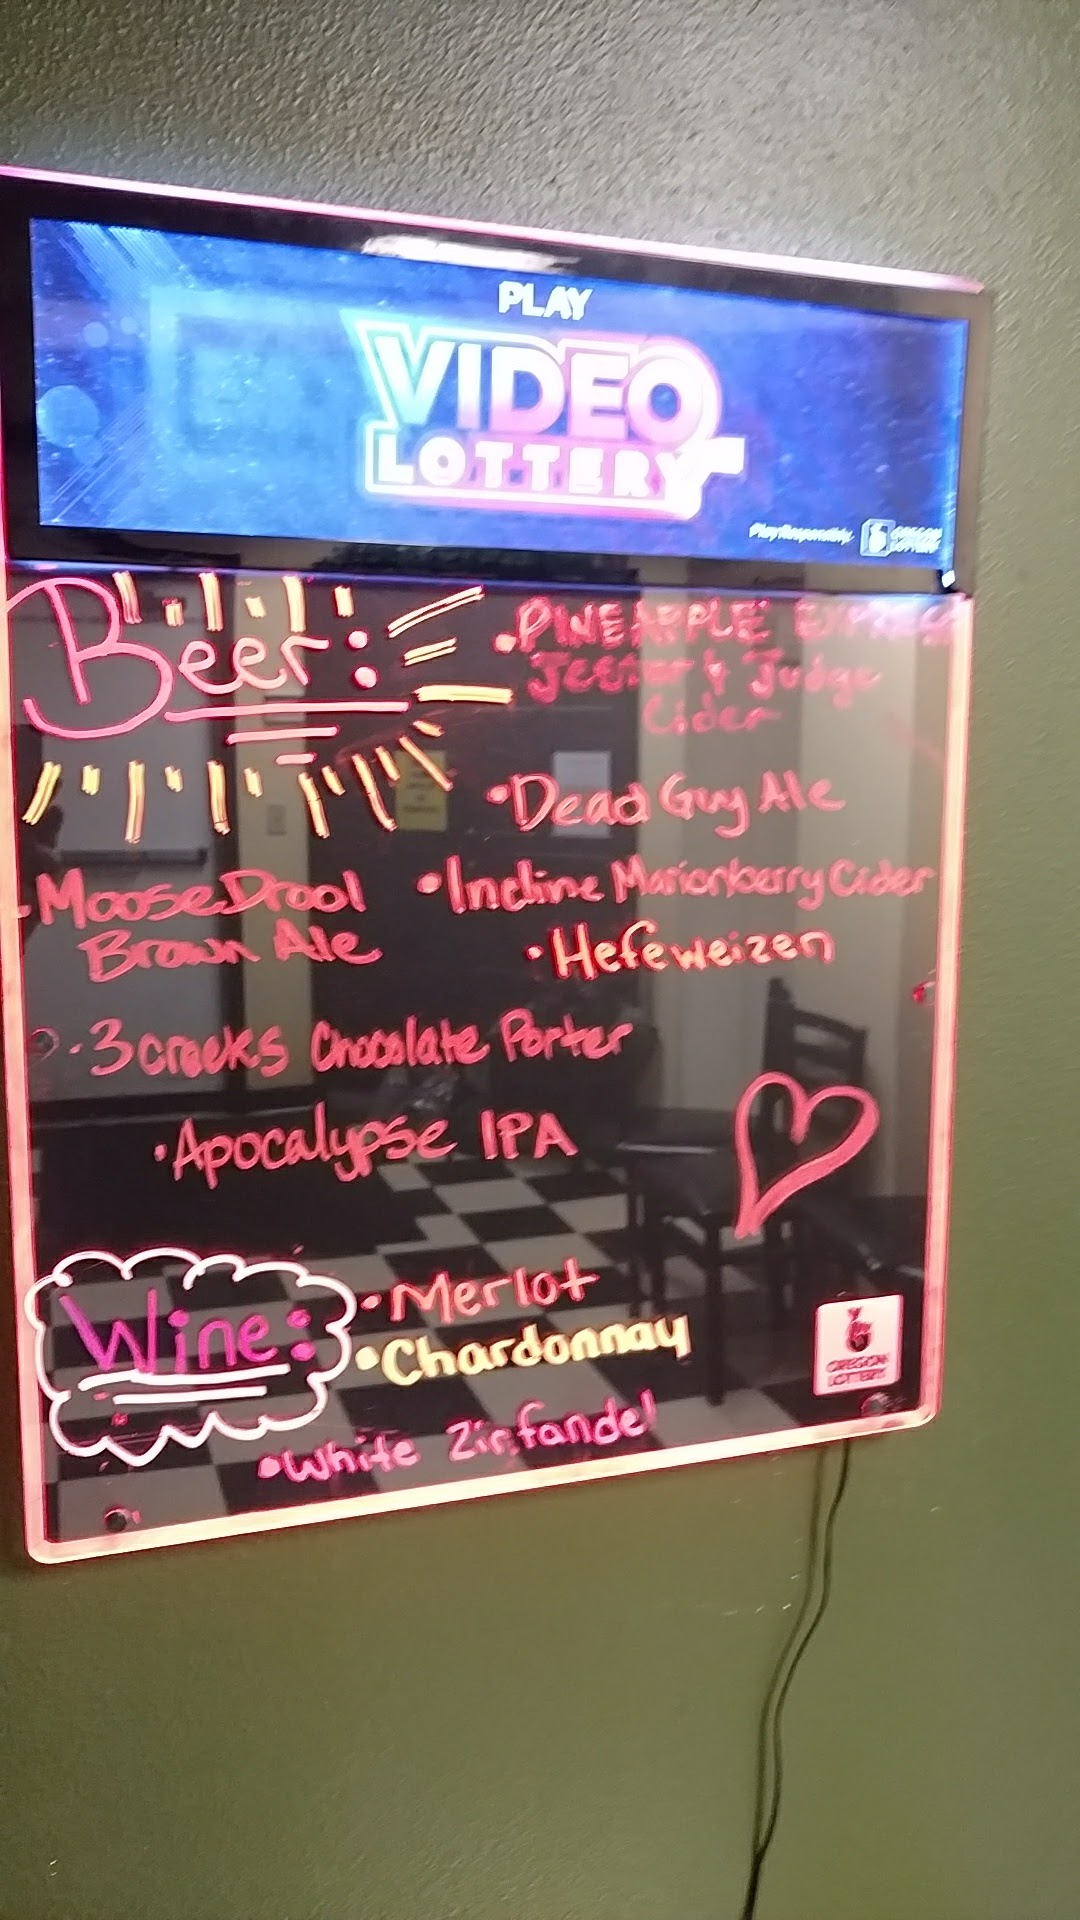 PLAY
VIDEO
LOTTERY
Play Responsibly.
OREGON
LOTTERY
Beer:
• PINEAPPLE EXPRESS
Jester & Judge
Cider
• Dead Guy Ale
• Moose Drool
Brown Ale
• Incline Marionberry Cider
• Hefeweizen
• 3 creeks Chocolate Porter
• Apocalypse IPA
Wine:
• Merlot
• Chardonnay
• White Zinfandel
OREGON
LOTTERY